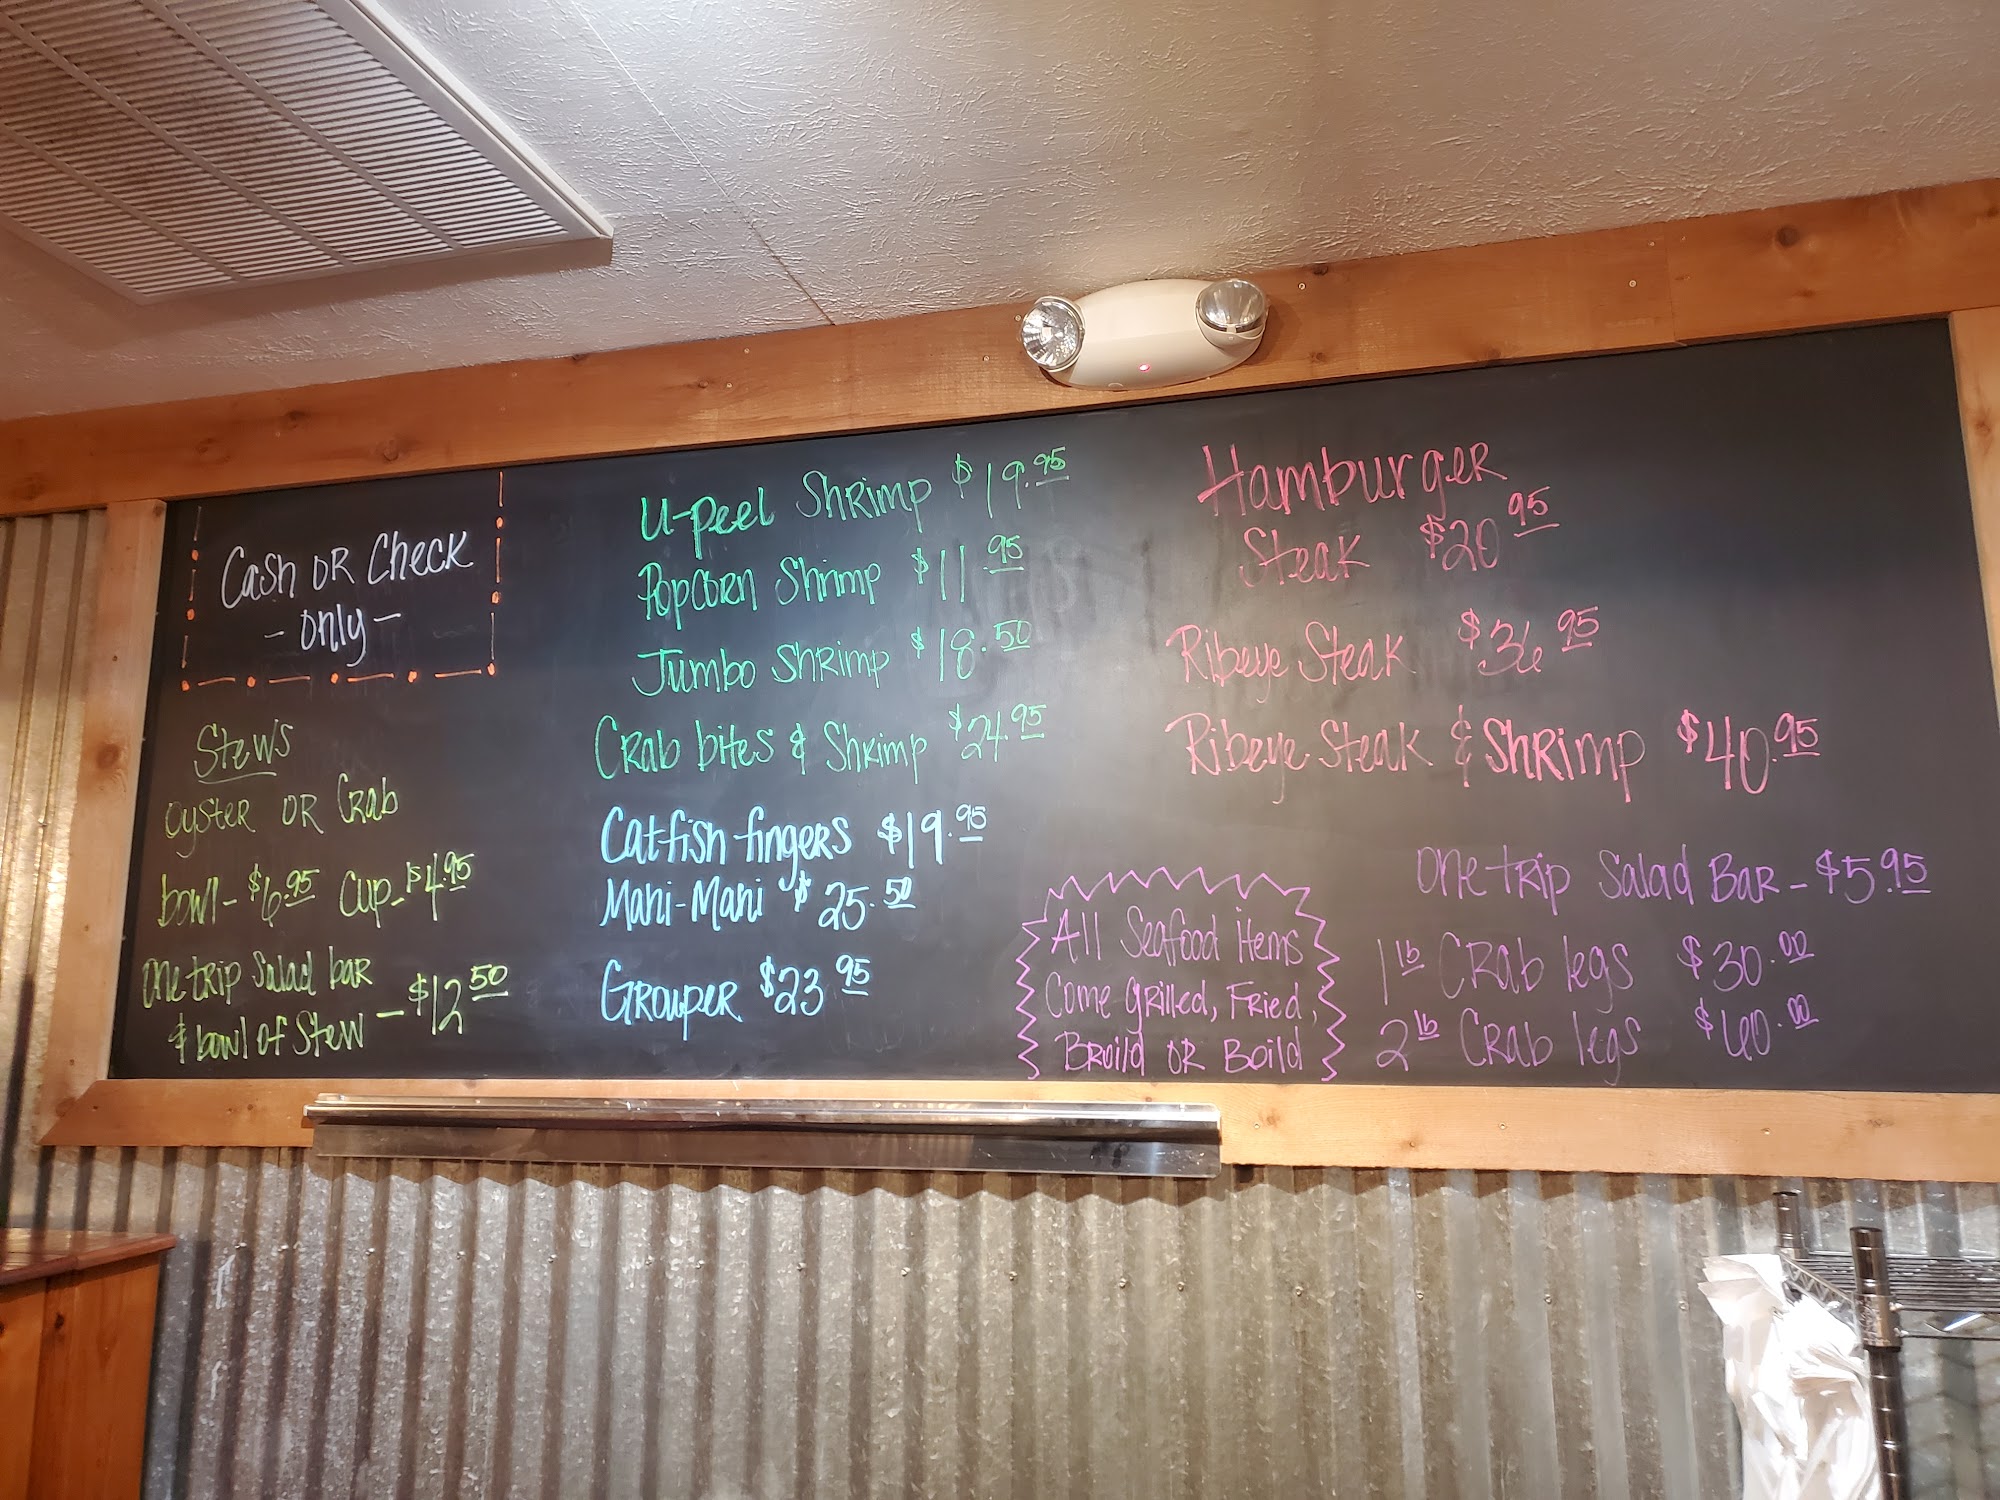 Cash OR Check
- only -
Stews
Oyster OR Crab
bowl - $6.95 Cup - $4.95
One trip Salad bar
& bowl of Stew - $12 50
U-Peel Shrimp $19.95
Popcorn Shrimp $11.95
Jumbo Shrimp $18.50
Crab bites & Shrimp $24.95
Catfish fingers $19.95
Mahi-Mahi $25.50
Grouper $23 95
Hamburger
Steak $20 95
Ribeye Steak $36 95
Ribeye Steak & Shrimp $40.95
All Seafood items
Come Grilled, Fried,
Broild OR Boild
One trip Salad Bar - $5.95
1 lb Crab legs $30.00
2 lb Crab legs $60.00